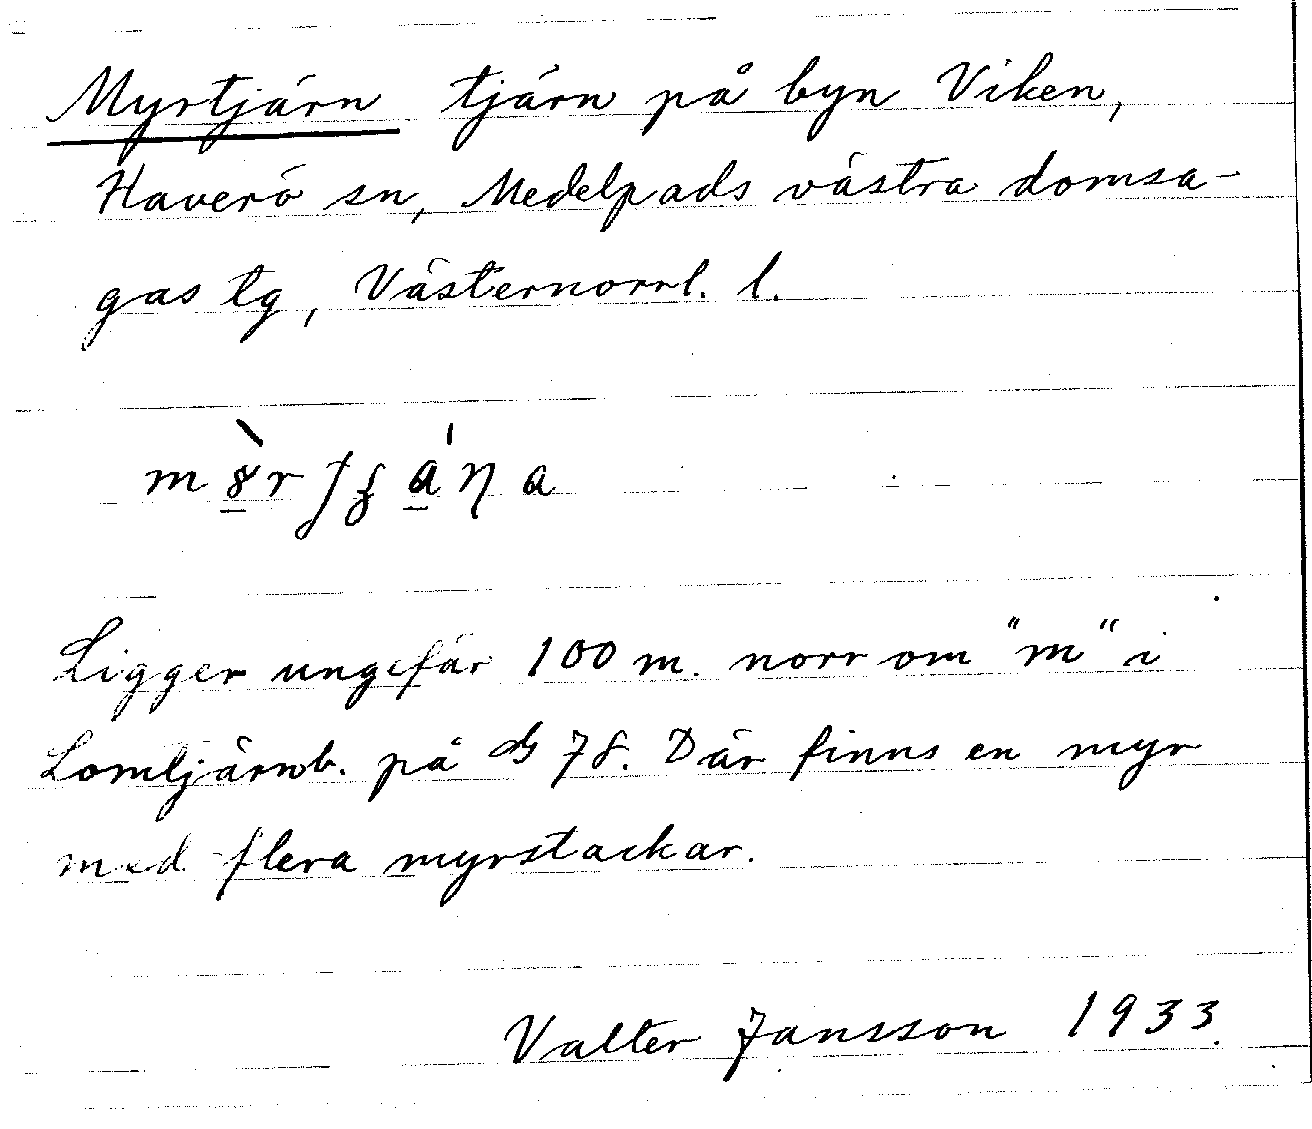 Myrtjärn tjärn på byn Viken,
Haverö sn, Medelpads västra domsa-
gas tg, Västernorrl. l.
Ligger ungefär 100 m. norr om "m" i
Lomtjärnb. på G 78. Där finns en myr
med flera myrstackar.
Valter Jansson 1933.